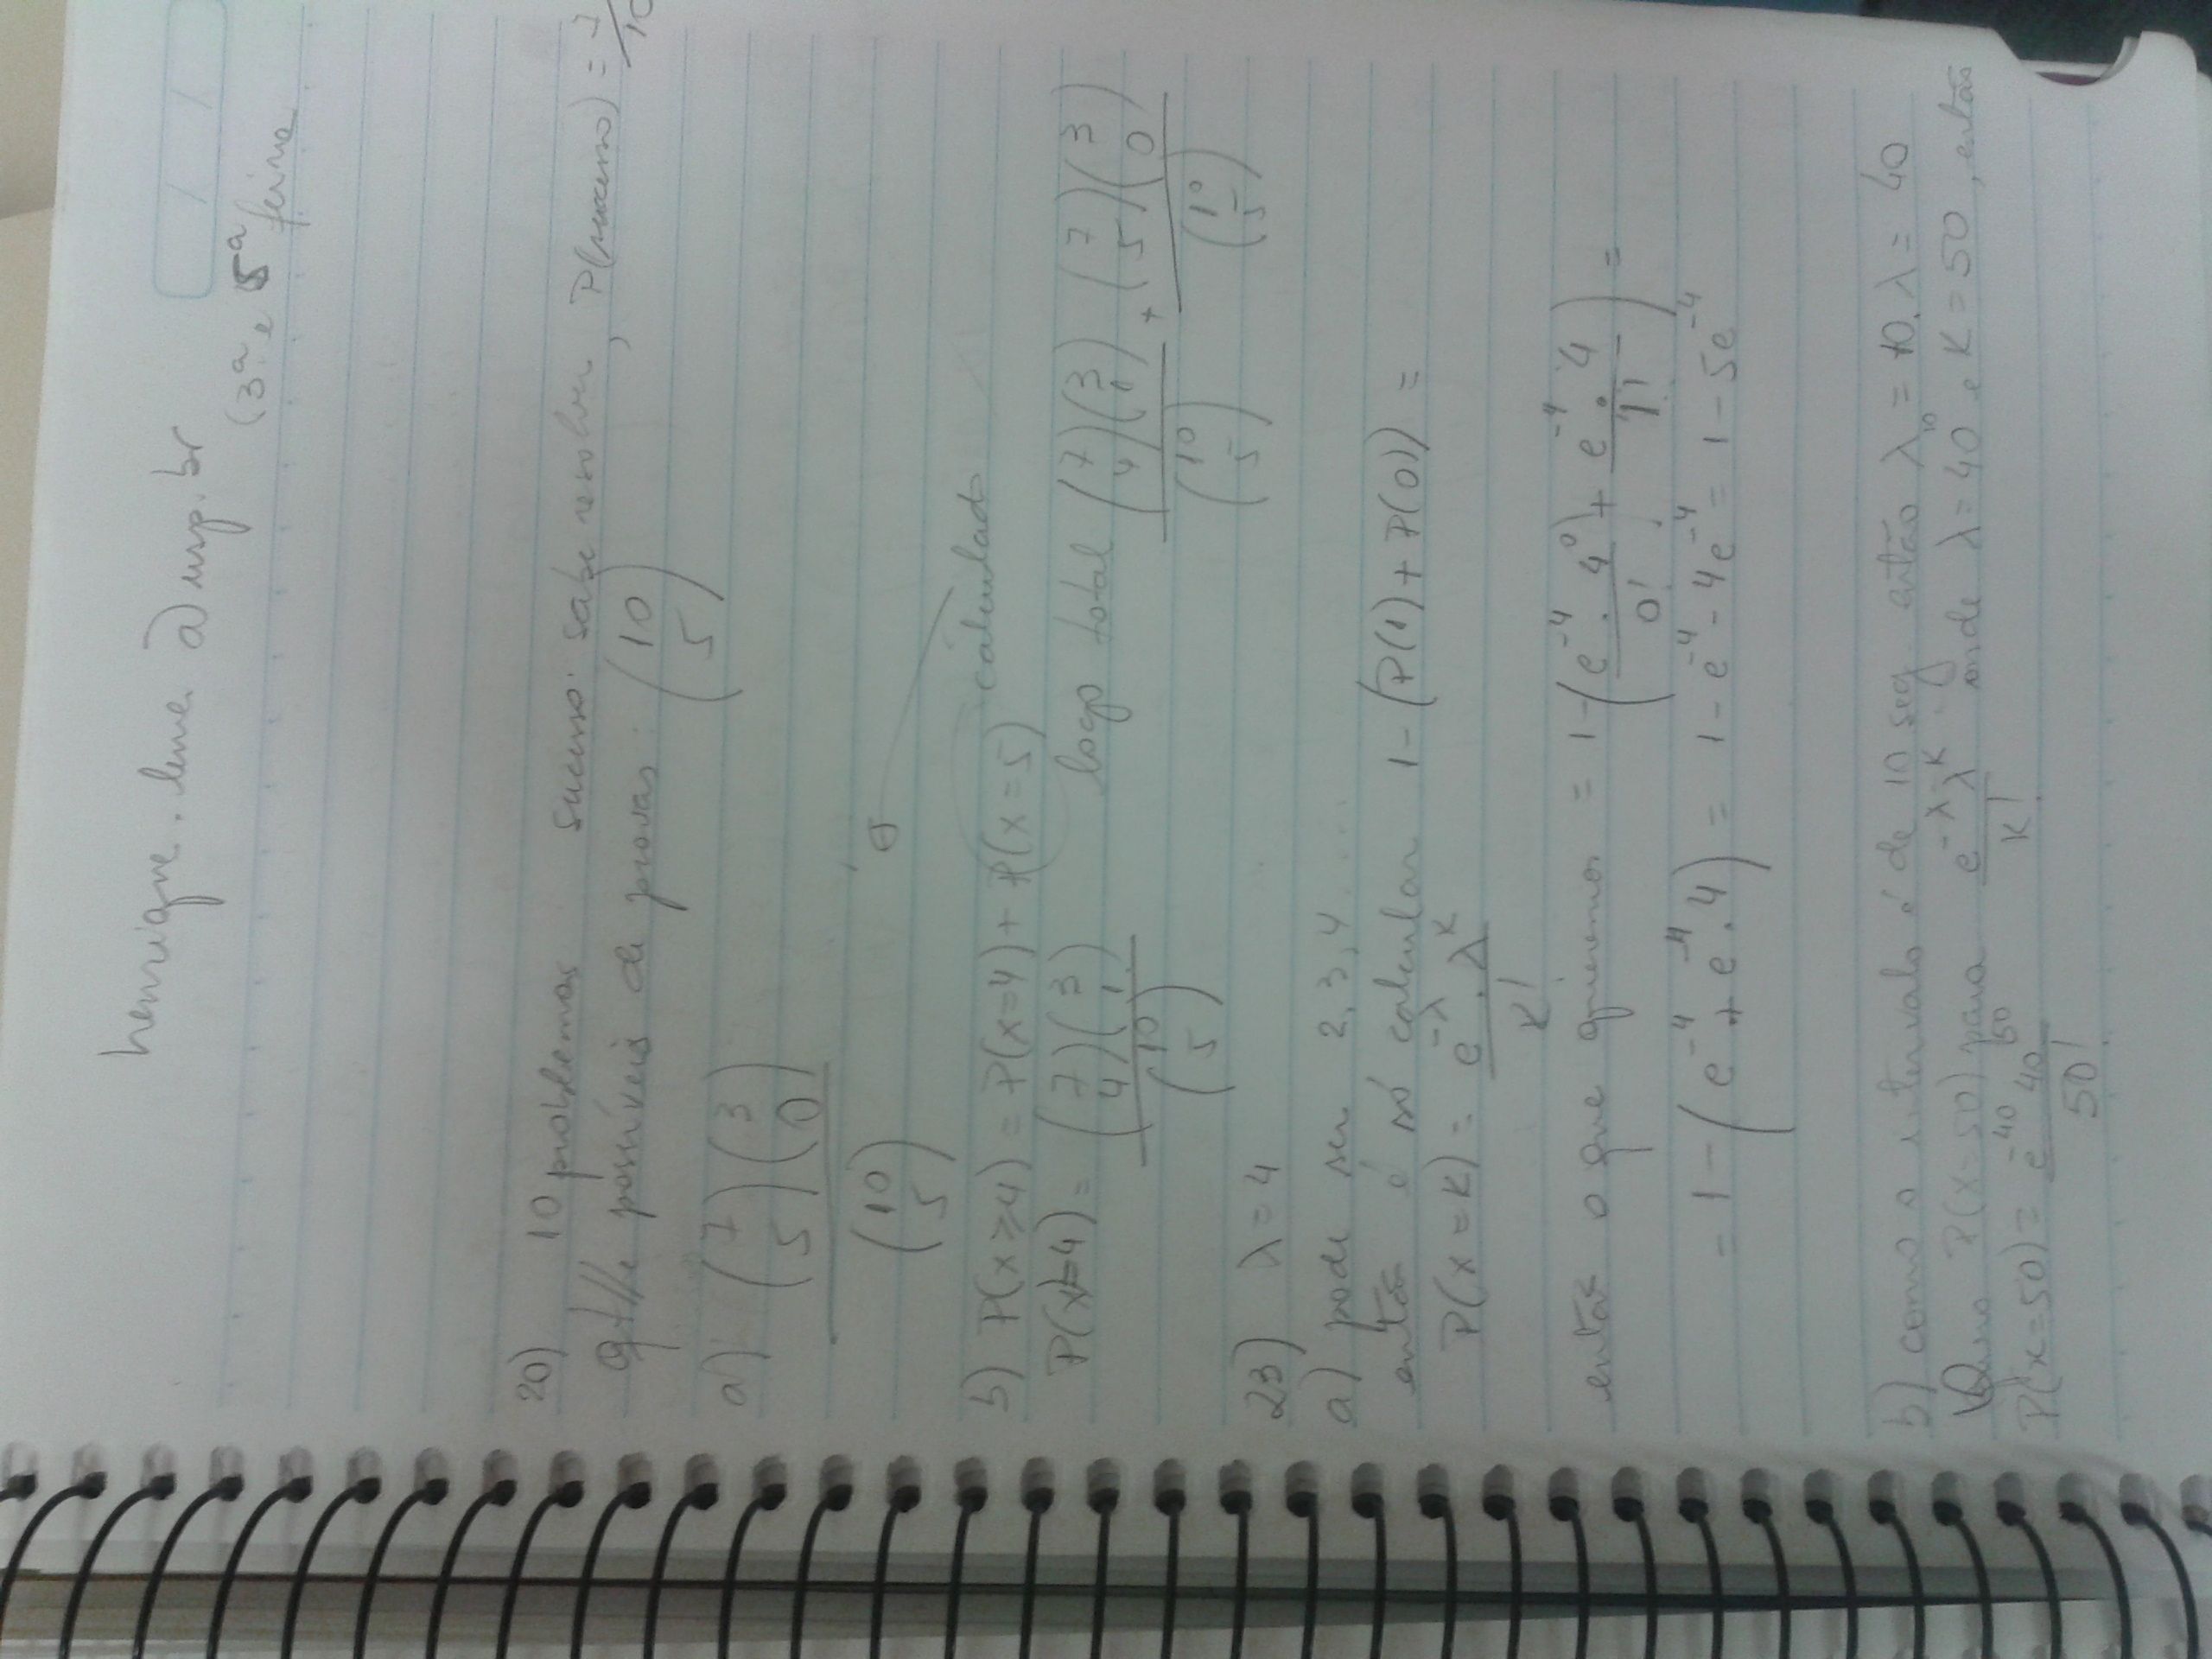 henrique.leme @ usp.br
(3ª e 5ª feira
20) 10 problemas sucesso: sabe resolver, P(sucesso) = 7/10
qtd/e possíveis de provas: (10 5)
a) (7 5)(3 0)
(10 5)
b) P(x⩾4) = P(x=4) + P(x=5) calculado
P(x=4) = (7 4)(3 1) / (10 5) logo total (7 4)(3 1) / (10 5) + (7 5)(3 0) / (10 5)
23) λ = 4
a) pode ser 2,3,4....
então é só calcular 1-(P(1)+P(0)) =
P(x=k) = e^-λ . λ^k / k!
então o que queremos = 1-(e^-4 . 4^0 / 0! + e^-4 . 4 / 1!) =
= 1-(e^-4 + e^-4 . 4) = 1-e^-4-4e^-4 = 1-5e^-4
b) como o intervalo é de 10 seg então λ10 = 10.λ = 40
Quero P(x=50) para e^-λ λ^k / k! onde λ=40 e K=50, então
P(x=50) = e^-40 40^50 / 50!